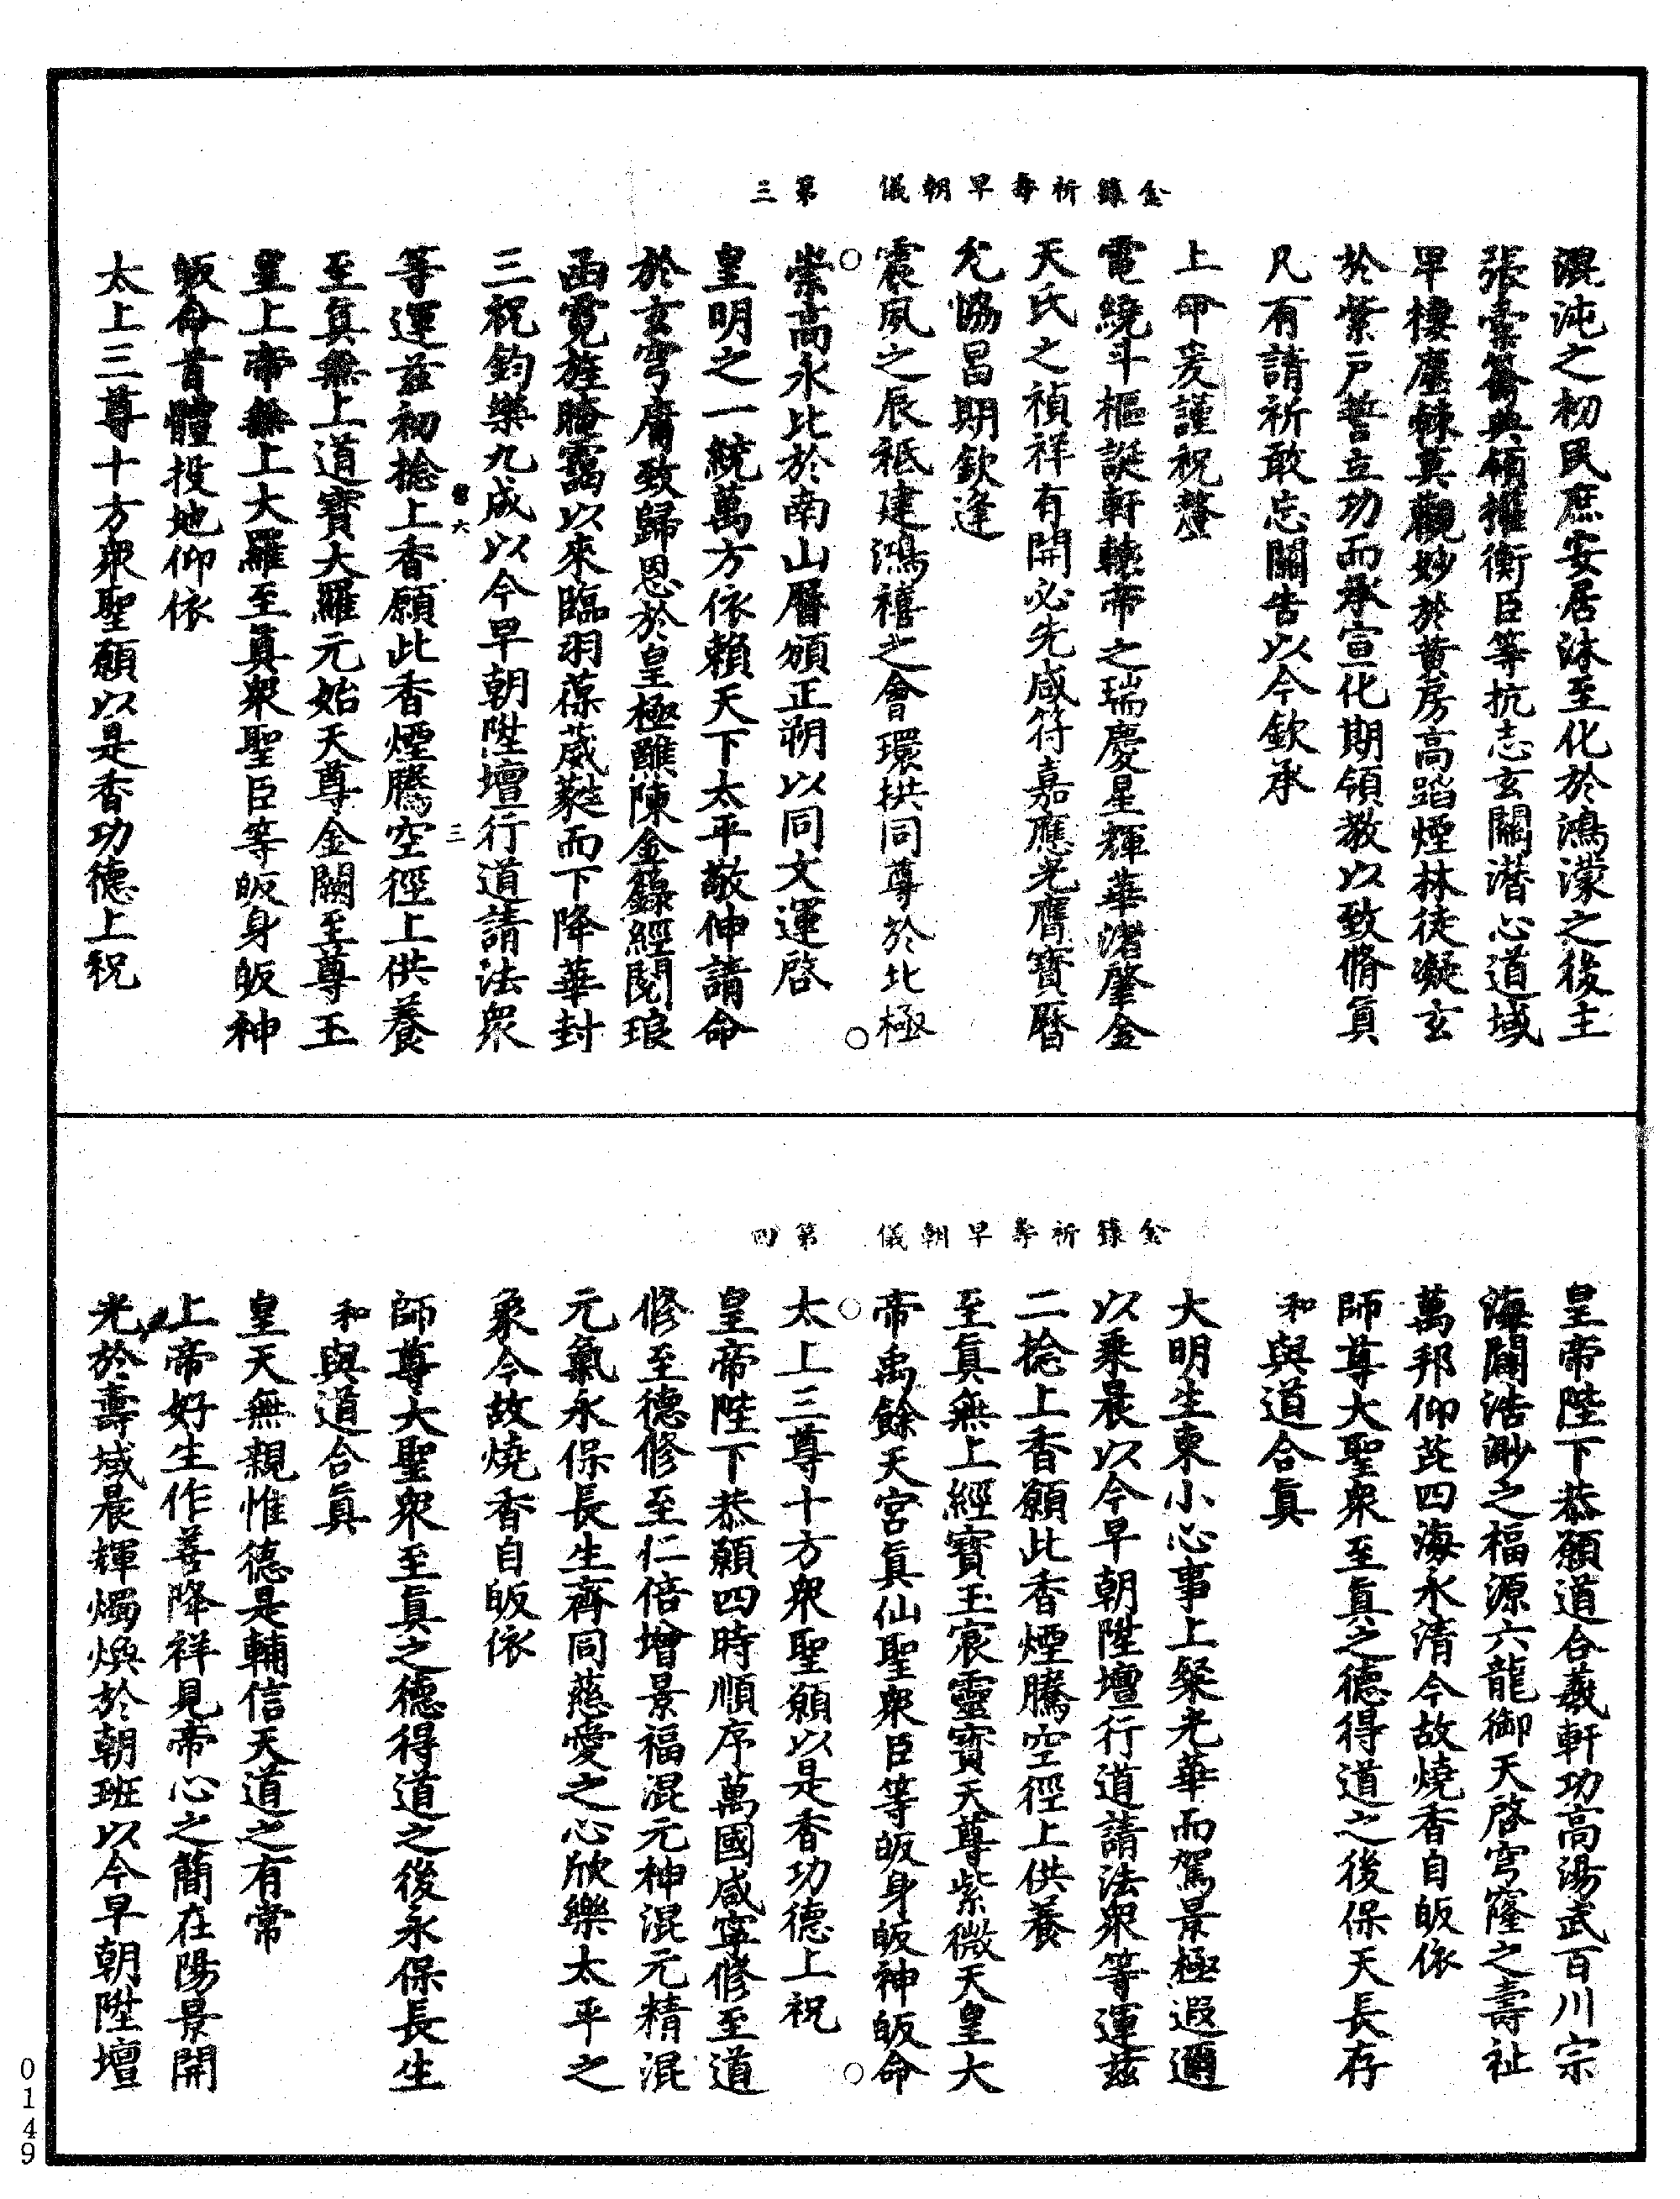 混沌之初民庶安居沐至化於鴻濛之後主
張槖籥典領權衡臣等抗志玄關潛心道域
早棲塵棘莫觀妙於黃房高蹈煙林徒凝玄
於紫戶誓立功而承宣化期領教以致脩眞
凡有請祈敢忘關告以今欽承
上命爰謹祝釐
電繞斗樞誕軒轅帝之瑞慶星輝華渚肇金
天氏之禎祥有開必先咸符嘉應光膺寶曆
允恊昌期欽逢
震夙之辰祇建鴻禧之會環拱同尊於北極
金籙祈壽早朝儀 第三
崇高永比於南山曆頒正朔以同文運啓
皇明之一統萬方依賴天下太平敬伸請命
於玄穹庸致歸恩於皇極醮陳金籙經閱琅
函霓旌晻靄以來臨羽葆葳蕤而下降華封
三祝鈞樂九成以今早朝陞壇行道請法衆
六 三
等運茲初捻上香願此香煙騰空徑上供養
至眞無上道寶大羅元始天尊金闕至尊玉
皇上帝無上大羅至眞衆聖臣等皈身皈神
皈命首體投地仰依
太上三尊十方衆聖願以是香功德上祝
皇帝陛下恭願道合羲軒功高湯武百川宗
海闡浩渺之福源六龍御天啓穹窿之壽祉
萬邦仰芘四海永清今故燒香自皈依
師尊大聖衆至眞之德得道之後保天長存
和與道合眞
大明生東小心事上粲光華而駕景極遐邇
以乘晨以今早朝陞壇行道請法衆等運茲
二捻上香願此香煙騰空徑上供養
至眞無上經寶玉宸靈寶天尊紫微天皇大
帝禹餘天宮眞仙聖衆臣等皈身皈神皈命
金籙祈壽早朝儀 第四
太上三尊十方衆聖願以是香功德上祝
皇帝陛下恭願四時順序萬國咸寧修至道
修至德修至仁倍增景福混元神混元精混
元氣永保長生齊同慈愛之心欣樂太平之
象今故燒香自皈依
師尊大聖衆至眞之德得道之後永保長生
和與道合眞
皇天無親惟德是輔信天道之有常
上帝好生作善降祥見帝心之簡在陽景開
光於壽域晨輝燭煥於朝班以今早朝陞壇
0149